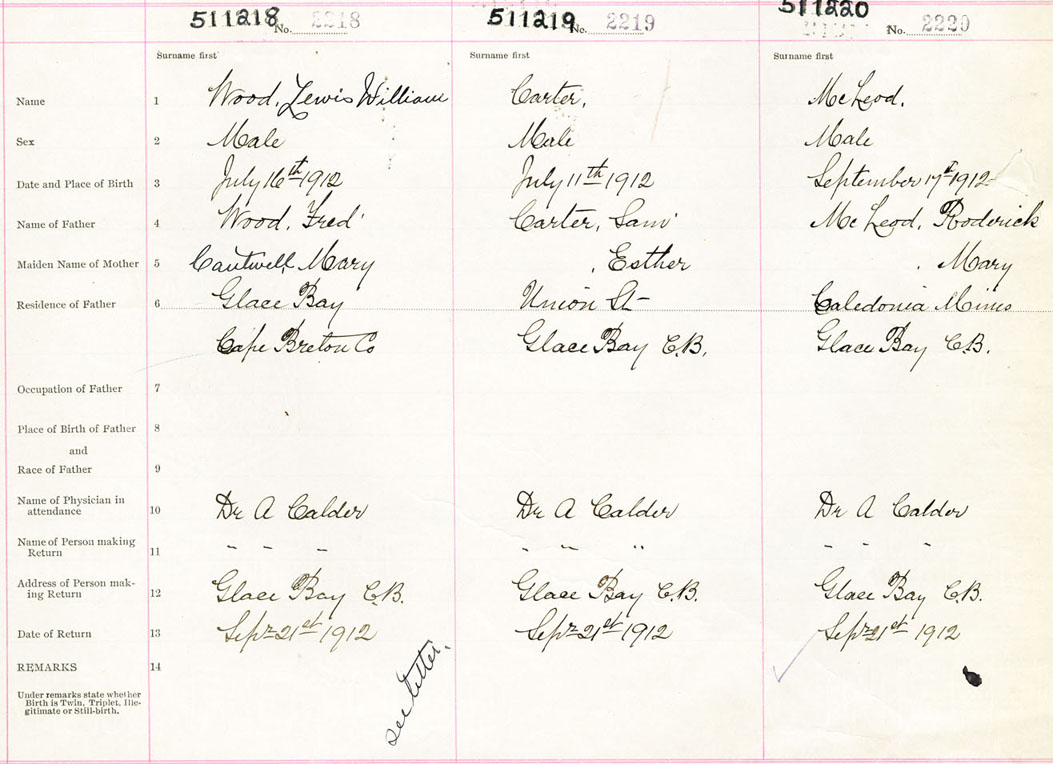 511218 No. 2218 511219 No. 2219 511220 No. 2220
Surname first Surname first Surname first
Name 1 Wood, Lewis William Carter, McLeod,
Sex 2 Male Male Male
Date and Place of Birth 3 July 16th 1912 July 11th 1912 September 17th 1912
Name of Father 4 Wood, Fred Carter, Sam McLeod, Roderick
Maiden Name of Mother 5 Cantwell Mary , Esther . Mary
Residence of Father 6 Glace Bay Union St Caledonia Mines
Cape Breton Co Glace Bay C.B. Glace Bay C.B.
Occupation of Father 7
Place of Birth of Father 8
and
Race of Father 9
Name of Physician in
attendance 10 Dr A Calder Dr A Calder Dr A Calder
Name of Person making
Return 11 " " " " " " " " "
Address of Person mak-
ing Return 12 Glace Bay C.B. Glace Bay C.B. Glace Bay C.B.
Date of Return 13 Sept 21st 1912 Sept 21st 1912 Sept 21st 1912
REMARKS 14
Under remarks state whether
Birth is Twin, Triplet, Ille-
gitimate or Still-birth.
see letter.